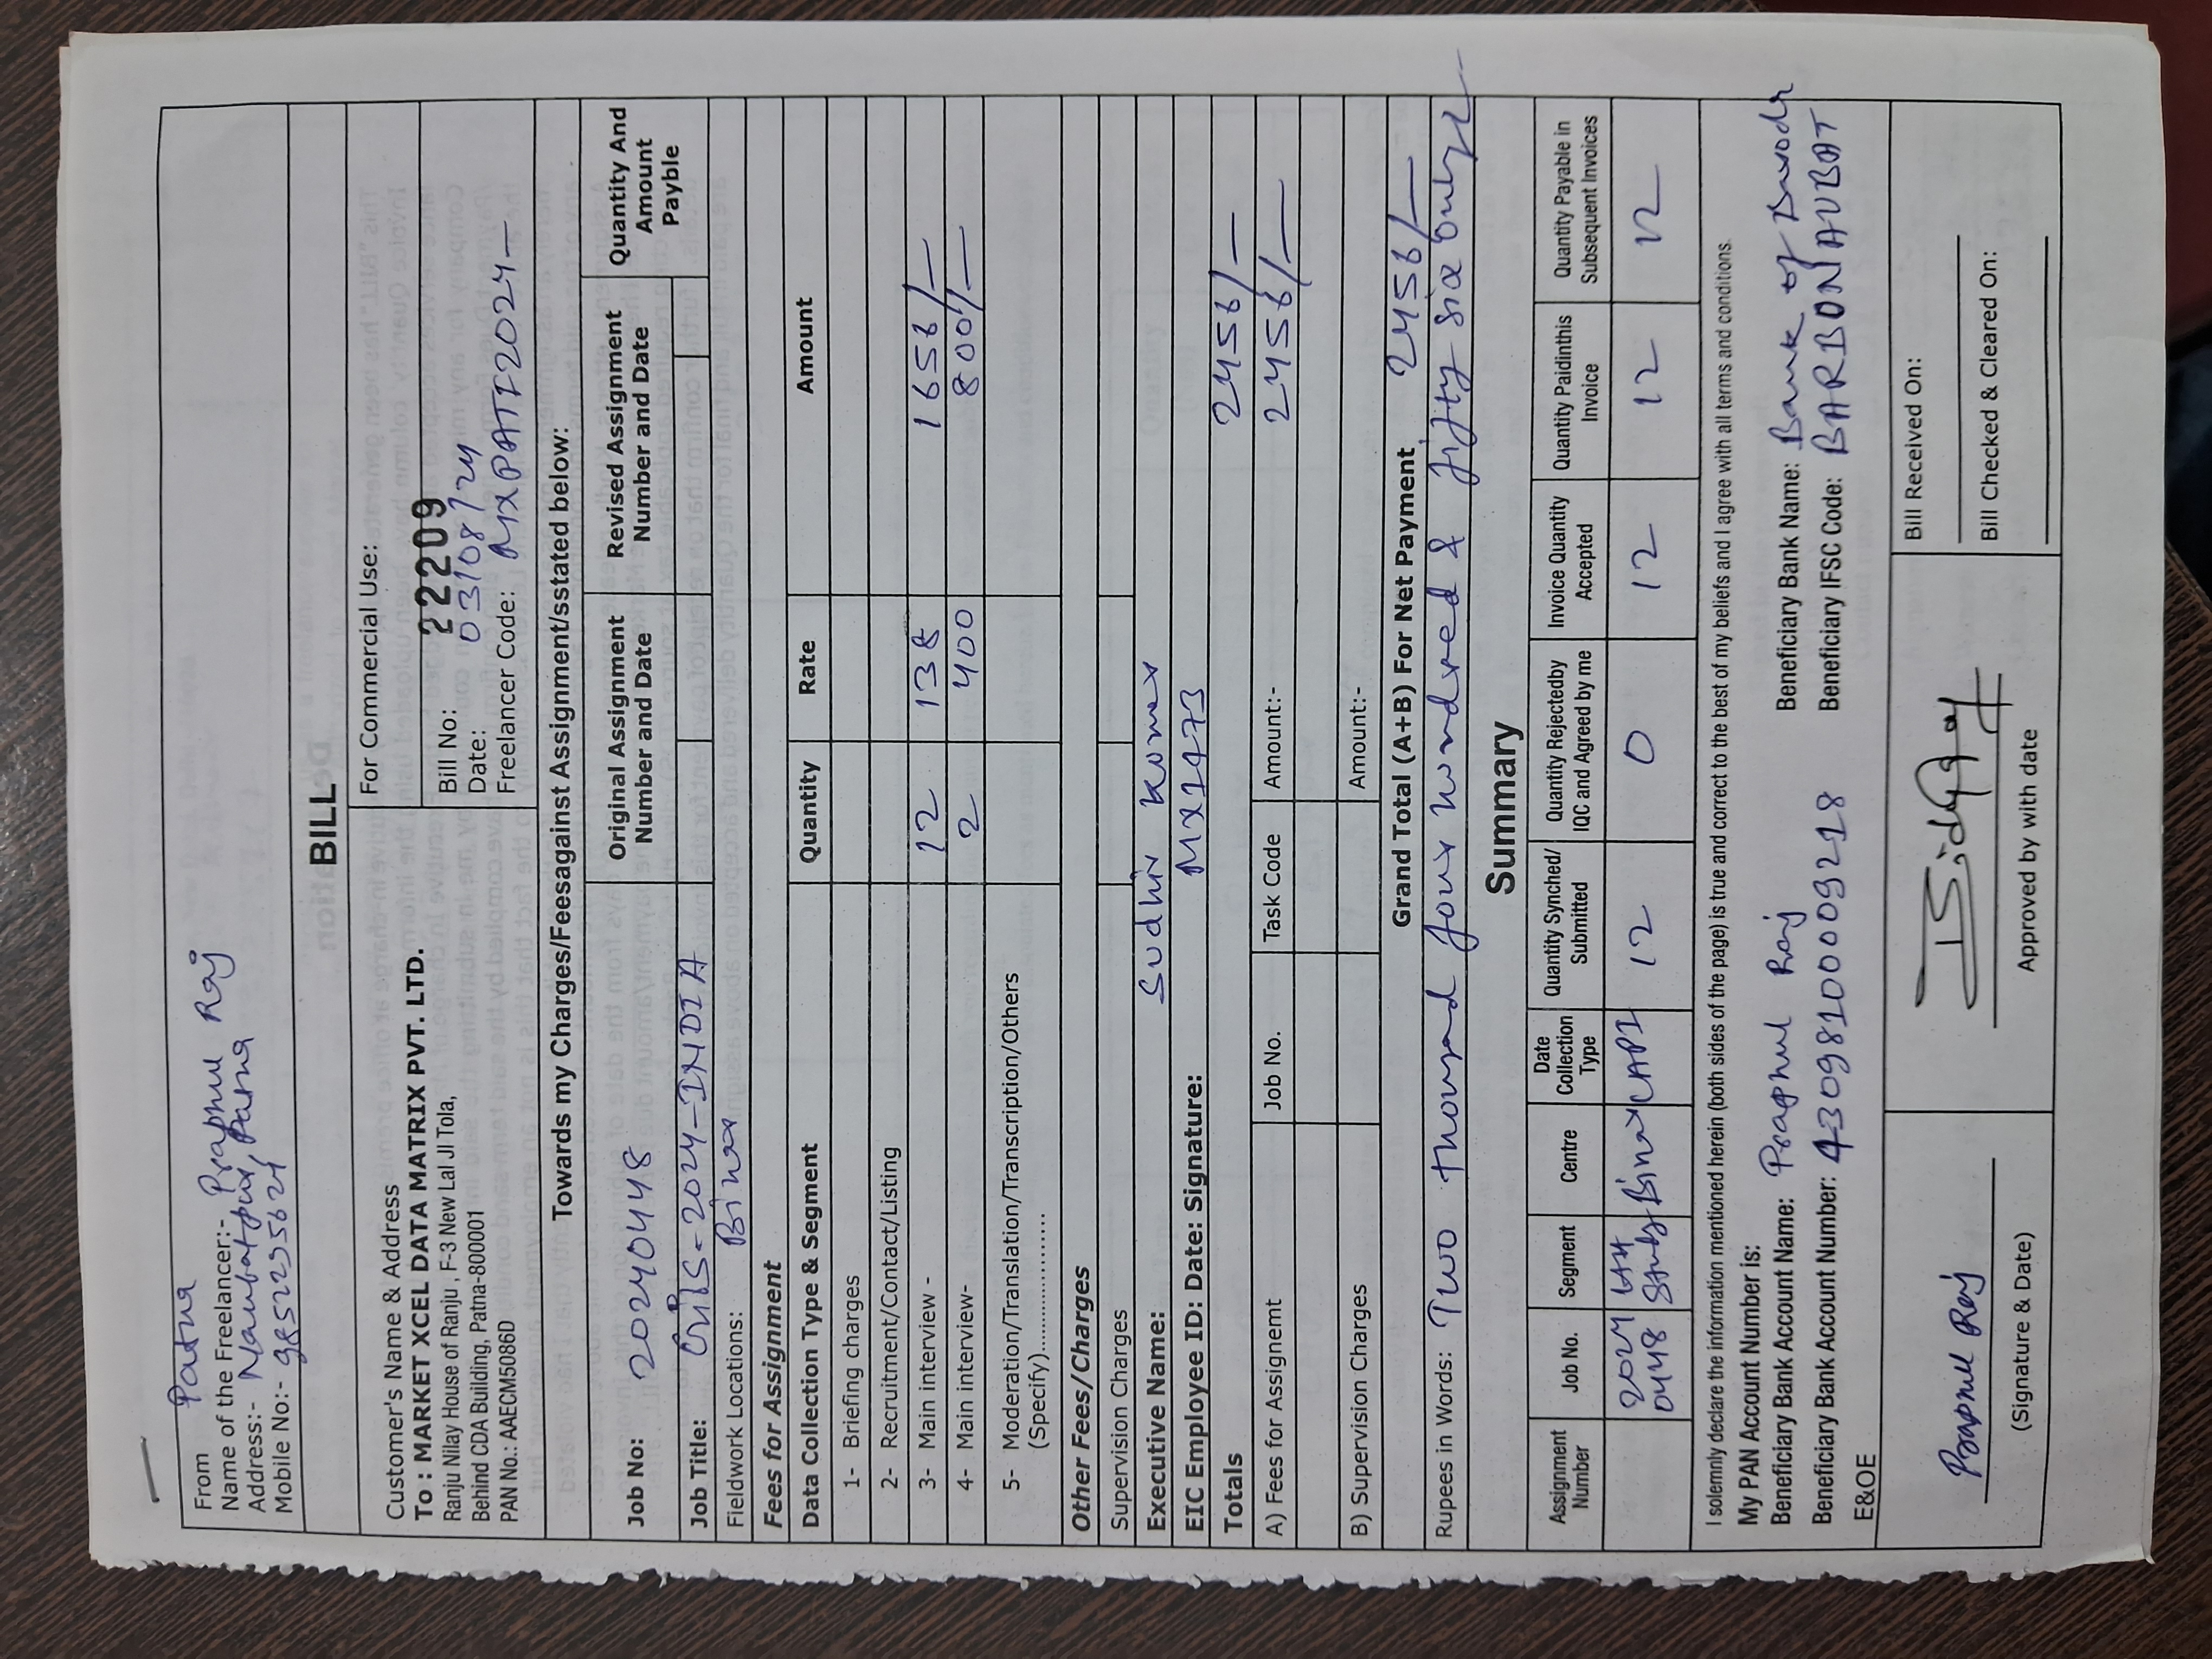 Patna
From
Name of the Freelancer:- Praphul Raj
Address:- Naubatpur, Patna
Mobile No:-
BILL
Customer's Name & Address
To : MARKET XCEL DATA MATRIX PVT. LTD.
Ranju Nilay House of Ranju , F-3 New Lal JI Tola,
Behind CDA Building, Patna-800001
PAN No.: AAECM5086D
For Commercial Use:
Bill No: 22209
Date: 03/08/24
Freelancer Code: MXPATF2024-
Towards my Charges/Feesagainst Assignment/sstated below:
Job No: 20240448
Original Assignment Number and Date
Revised Assignment Number and Date
Quantity And Amount Payble
Job Title: -2024-INDIA
Fieldwork Locations: Bihar
Fees for Assignment
Data Collection Type & Segment Quantity Rate Amount
1- Briefing charges
2- Recruitment/Contact/Listing
3- Main interview - 12 138 1656/-
4- Main interview- 2 400 800/-
5- Moderation/Translation/Transcription/Others
(Specify)..................
Other Fees/Charges
Supervision Charges
Executive Name: Sudhir Kumar
EIC Employee ID: Date: Signature: MX1473
Totals 2456/-
A) Fees for Assignemt Job No. Task Code Amount:- 2456/-
B) Supervision Charges Amount:-
Grand Total (A+B) For Net Payment 2456/-
Rupees in Words: Two thousand four hundred & fifty six only
Summary
Assignment Number
Job No.
Segment
Centre
Date Collection Type
Quantity Synched/ Submitted
Quantity Rejectedby IQC and Agreed by me
Invoice Quantity Accepted
Quantity Paidinthis Invoice
Quantity Payable in Subsequent Invoices
2024 0448 Study Bihar CAPI 12 0 12 12 12
I solemnly declare the information mentioned herein (both sides of the page) is true and correct to the best of my beliefs and I agree with all terms and conditions.
My PAN Account Number is:
Beneficiary Bank Account Name: Praphul Raj Beneficiary Bank Name: Bank of Baroda
Beneficiary Bank Account Number: 43098100009218 Beneficiary IFSC Code: BARB0NAUBAT
E&OE
Praphul Raj
(Signature & Date)
Approved by with date
Bill Received On:
Bill Checked & Cleared On: